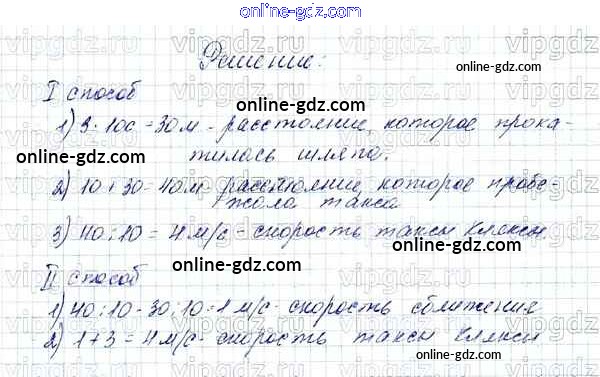 online-gdz.com
Решение:
I способ
online-gdz.com
1) 3 · 10с = 30м - расстояние, которое прока-
тилось шляпа.
online-gdz.com
online-gdz.com
2) 10 + 30 = 40м - расстояние, которое пробе-
жала такса
online-gdz.com
3) 40 : 10 = 4 м/с - скорость таксы Кляксы
online-gdz.com
II способ
1) 40 : 10 - 30 : 10 = 1 м/с - скорость сближения
2) 1 + 3 = 4 м/с - скорость таксы Кляксы
online-gdz.com
online-gdz.com